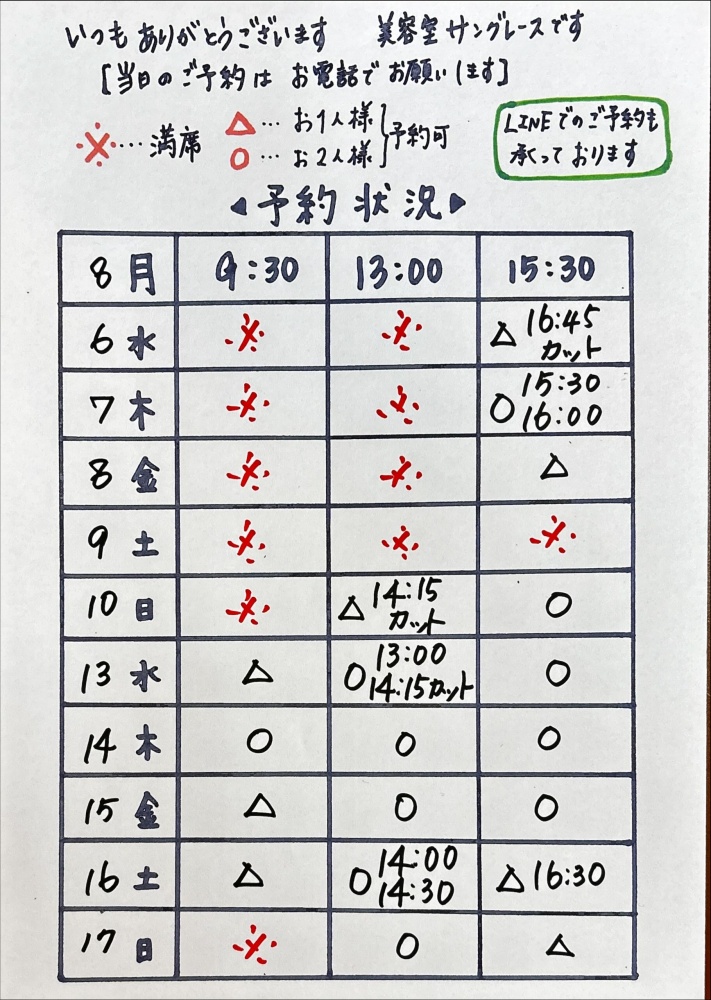 いつも ありがとうございます 美容室 サングレースです
[当日のご予約は お電話で お願いします]
※…満席
△…お1人様
○…お2人様
予約可
LINEでのご予約も
承くっております
◀予約 状況▶
8 月 9:30 13:00 15:30
6 水 ※ ※ △ 16:45 カット
7 木 ※ ※ ○ 15:30 16:00
8 金 ※ ※ △
9 土 ※ ※ ※
10 日 ※ △ 14:15 カット ○
13 水 △ ○ 13:00 14:15カット ○
14 木 ○ ○ ○
15 金 △ ○ ○
16 土 △ ○ 14:00 14:30 △ 16:30
17 日 ※ ○ △